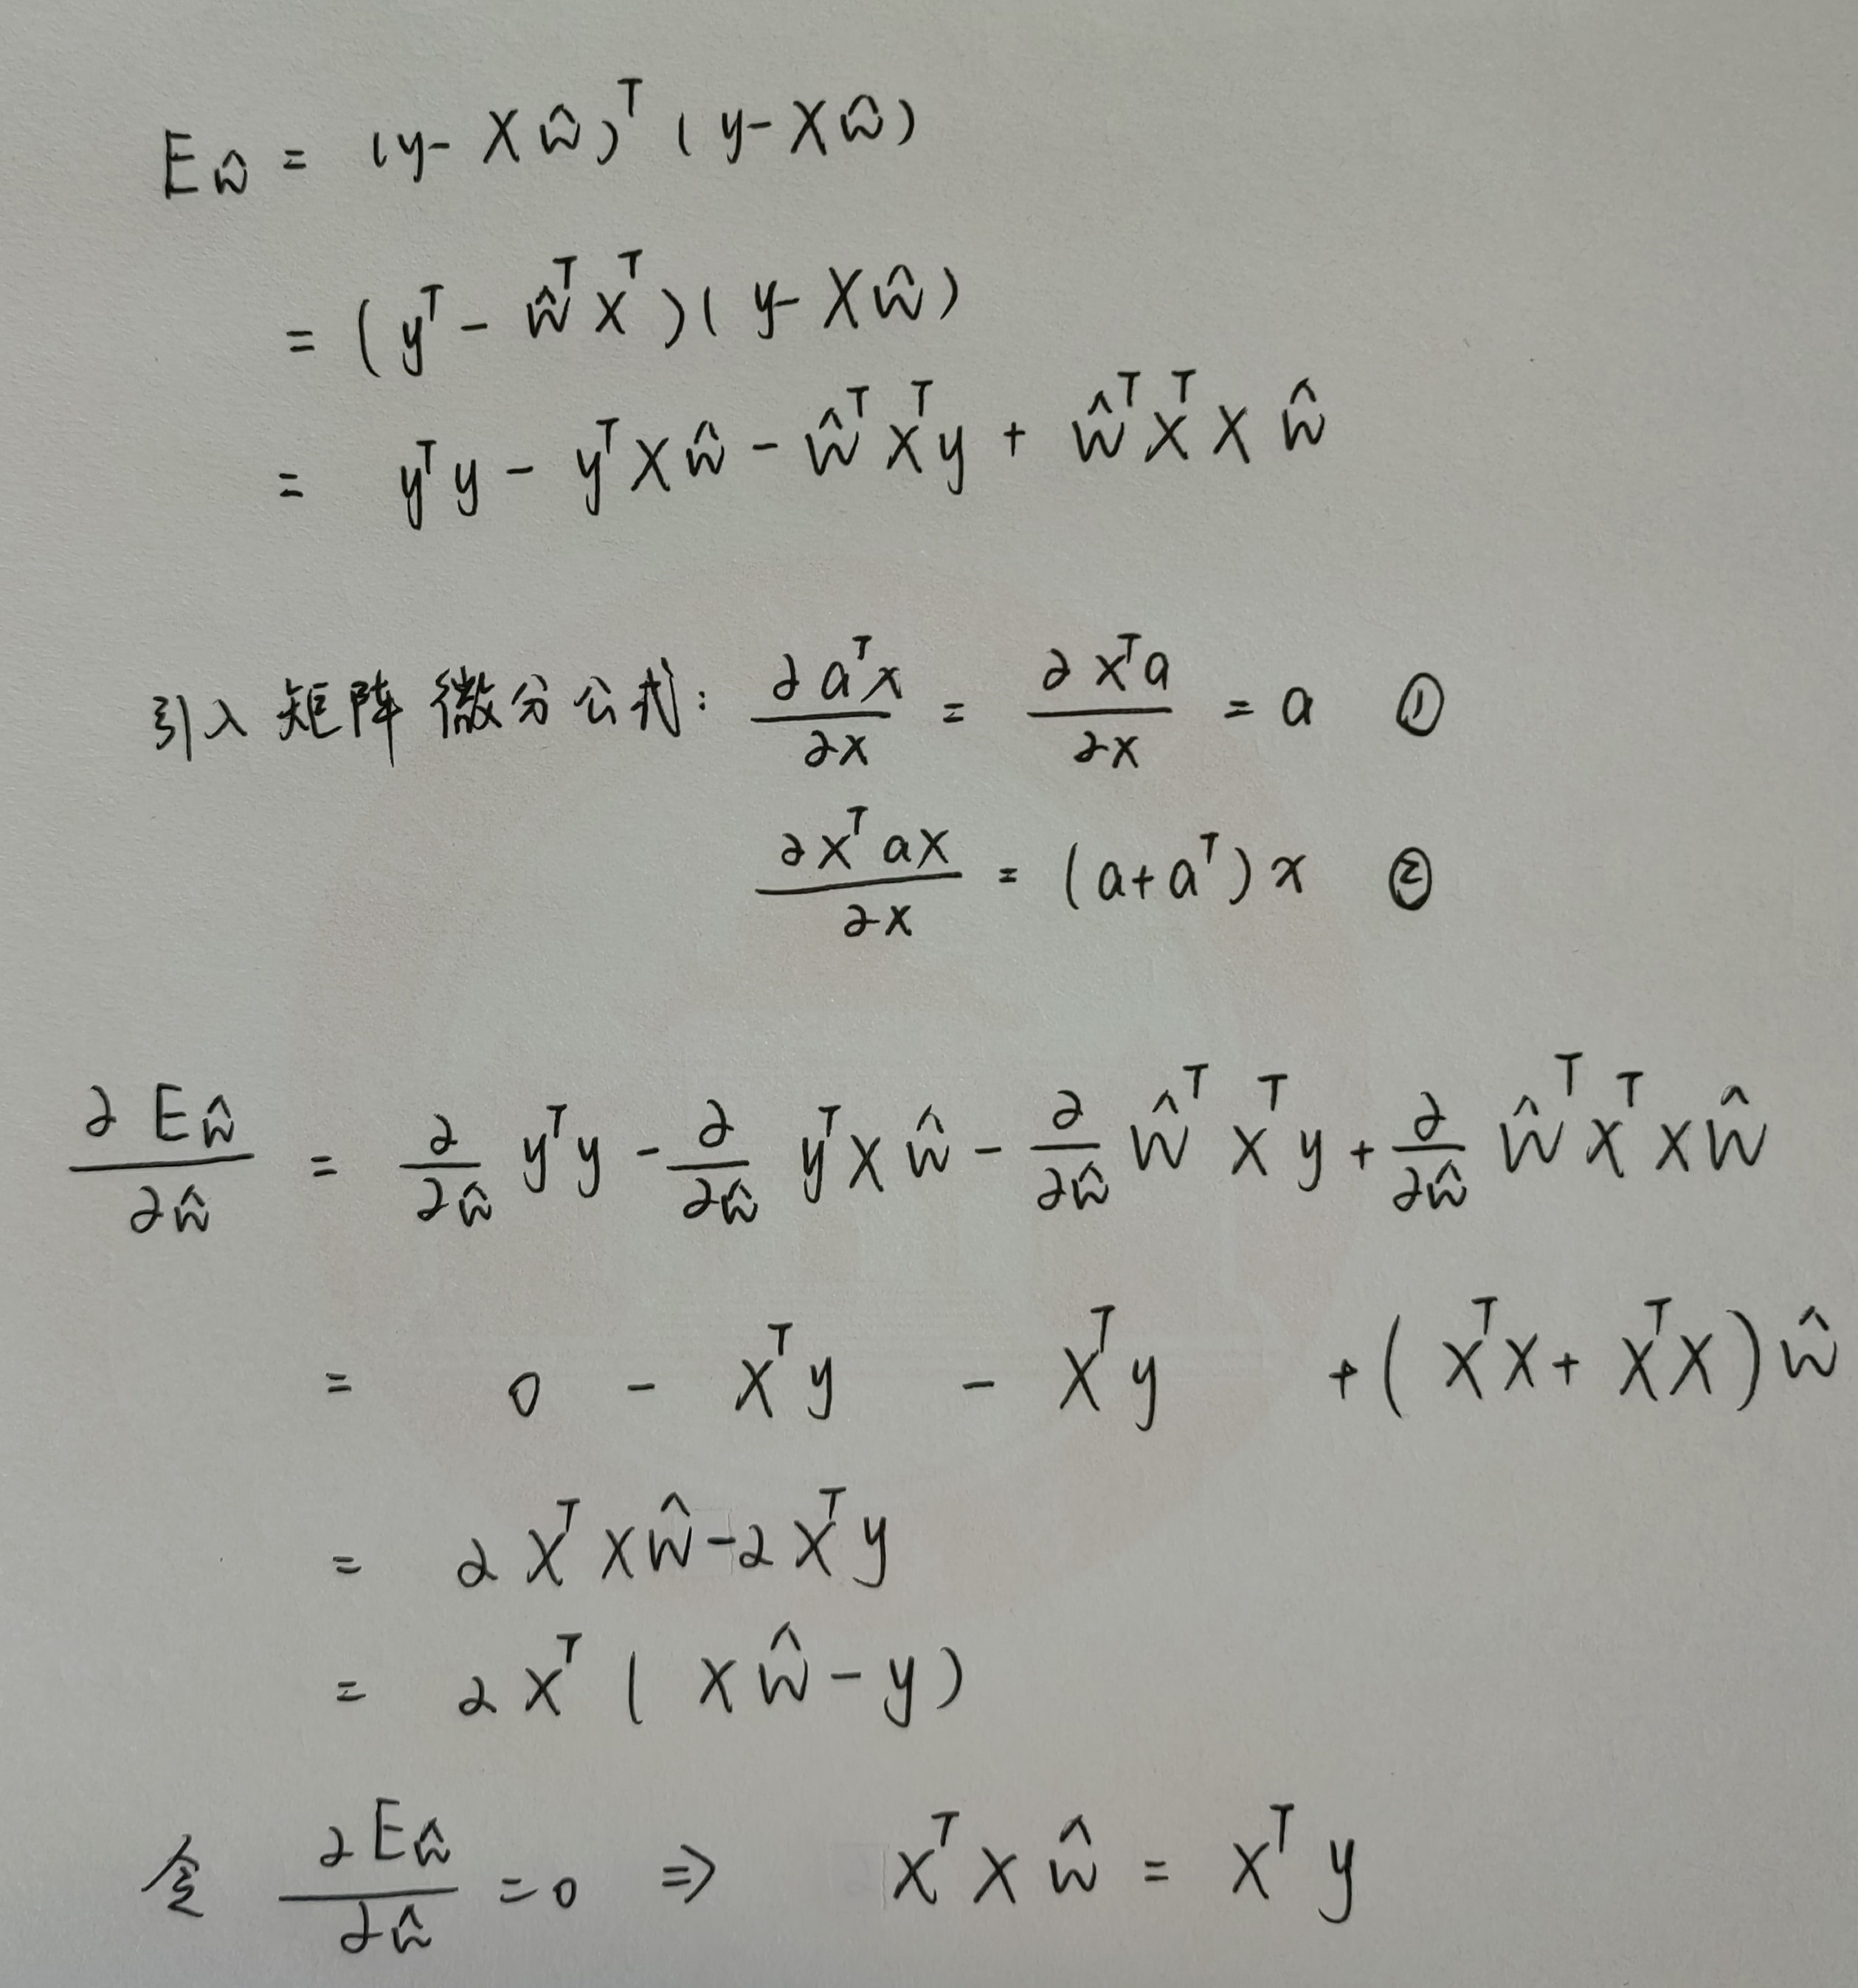 E_ŵ = (y - Xŵ)^T (y - Xŵ)
= (y^T - ŵ^T X^T)(y - Xŵ)
= y^T y - y^T Xŵ - ŵ^T X^T y + ŵ^T X^T X ŵ
引入矩阵微分公式: ∂a^T x / ∂x = ∂x^T a / ∂x = a ①
∂x^T a x / ∂x = (a + a^T) x ②
∂E_ŵ / ∂ŵ = ∂/∂ŵ y^T y - ∂/∂ŵ y^T X ŵ - ∂/∂ŵ ŵ^T X^T y + ∂/∂ŵ ŵ^T X^T X ŵ
= 0 - X^T y - X^T y + (X^T X + X^T X) ŵ
= 2 X^T X ŵ - 2 X^T y
= 2 X^T (X ŵ - y)
令 ∂E_ŵ / ∂ŵ = 0 ⇒ X^T X ŵ = X^T y